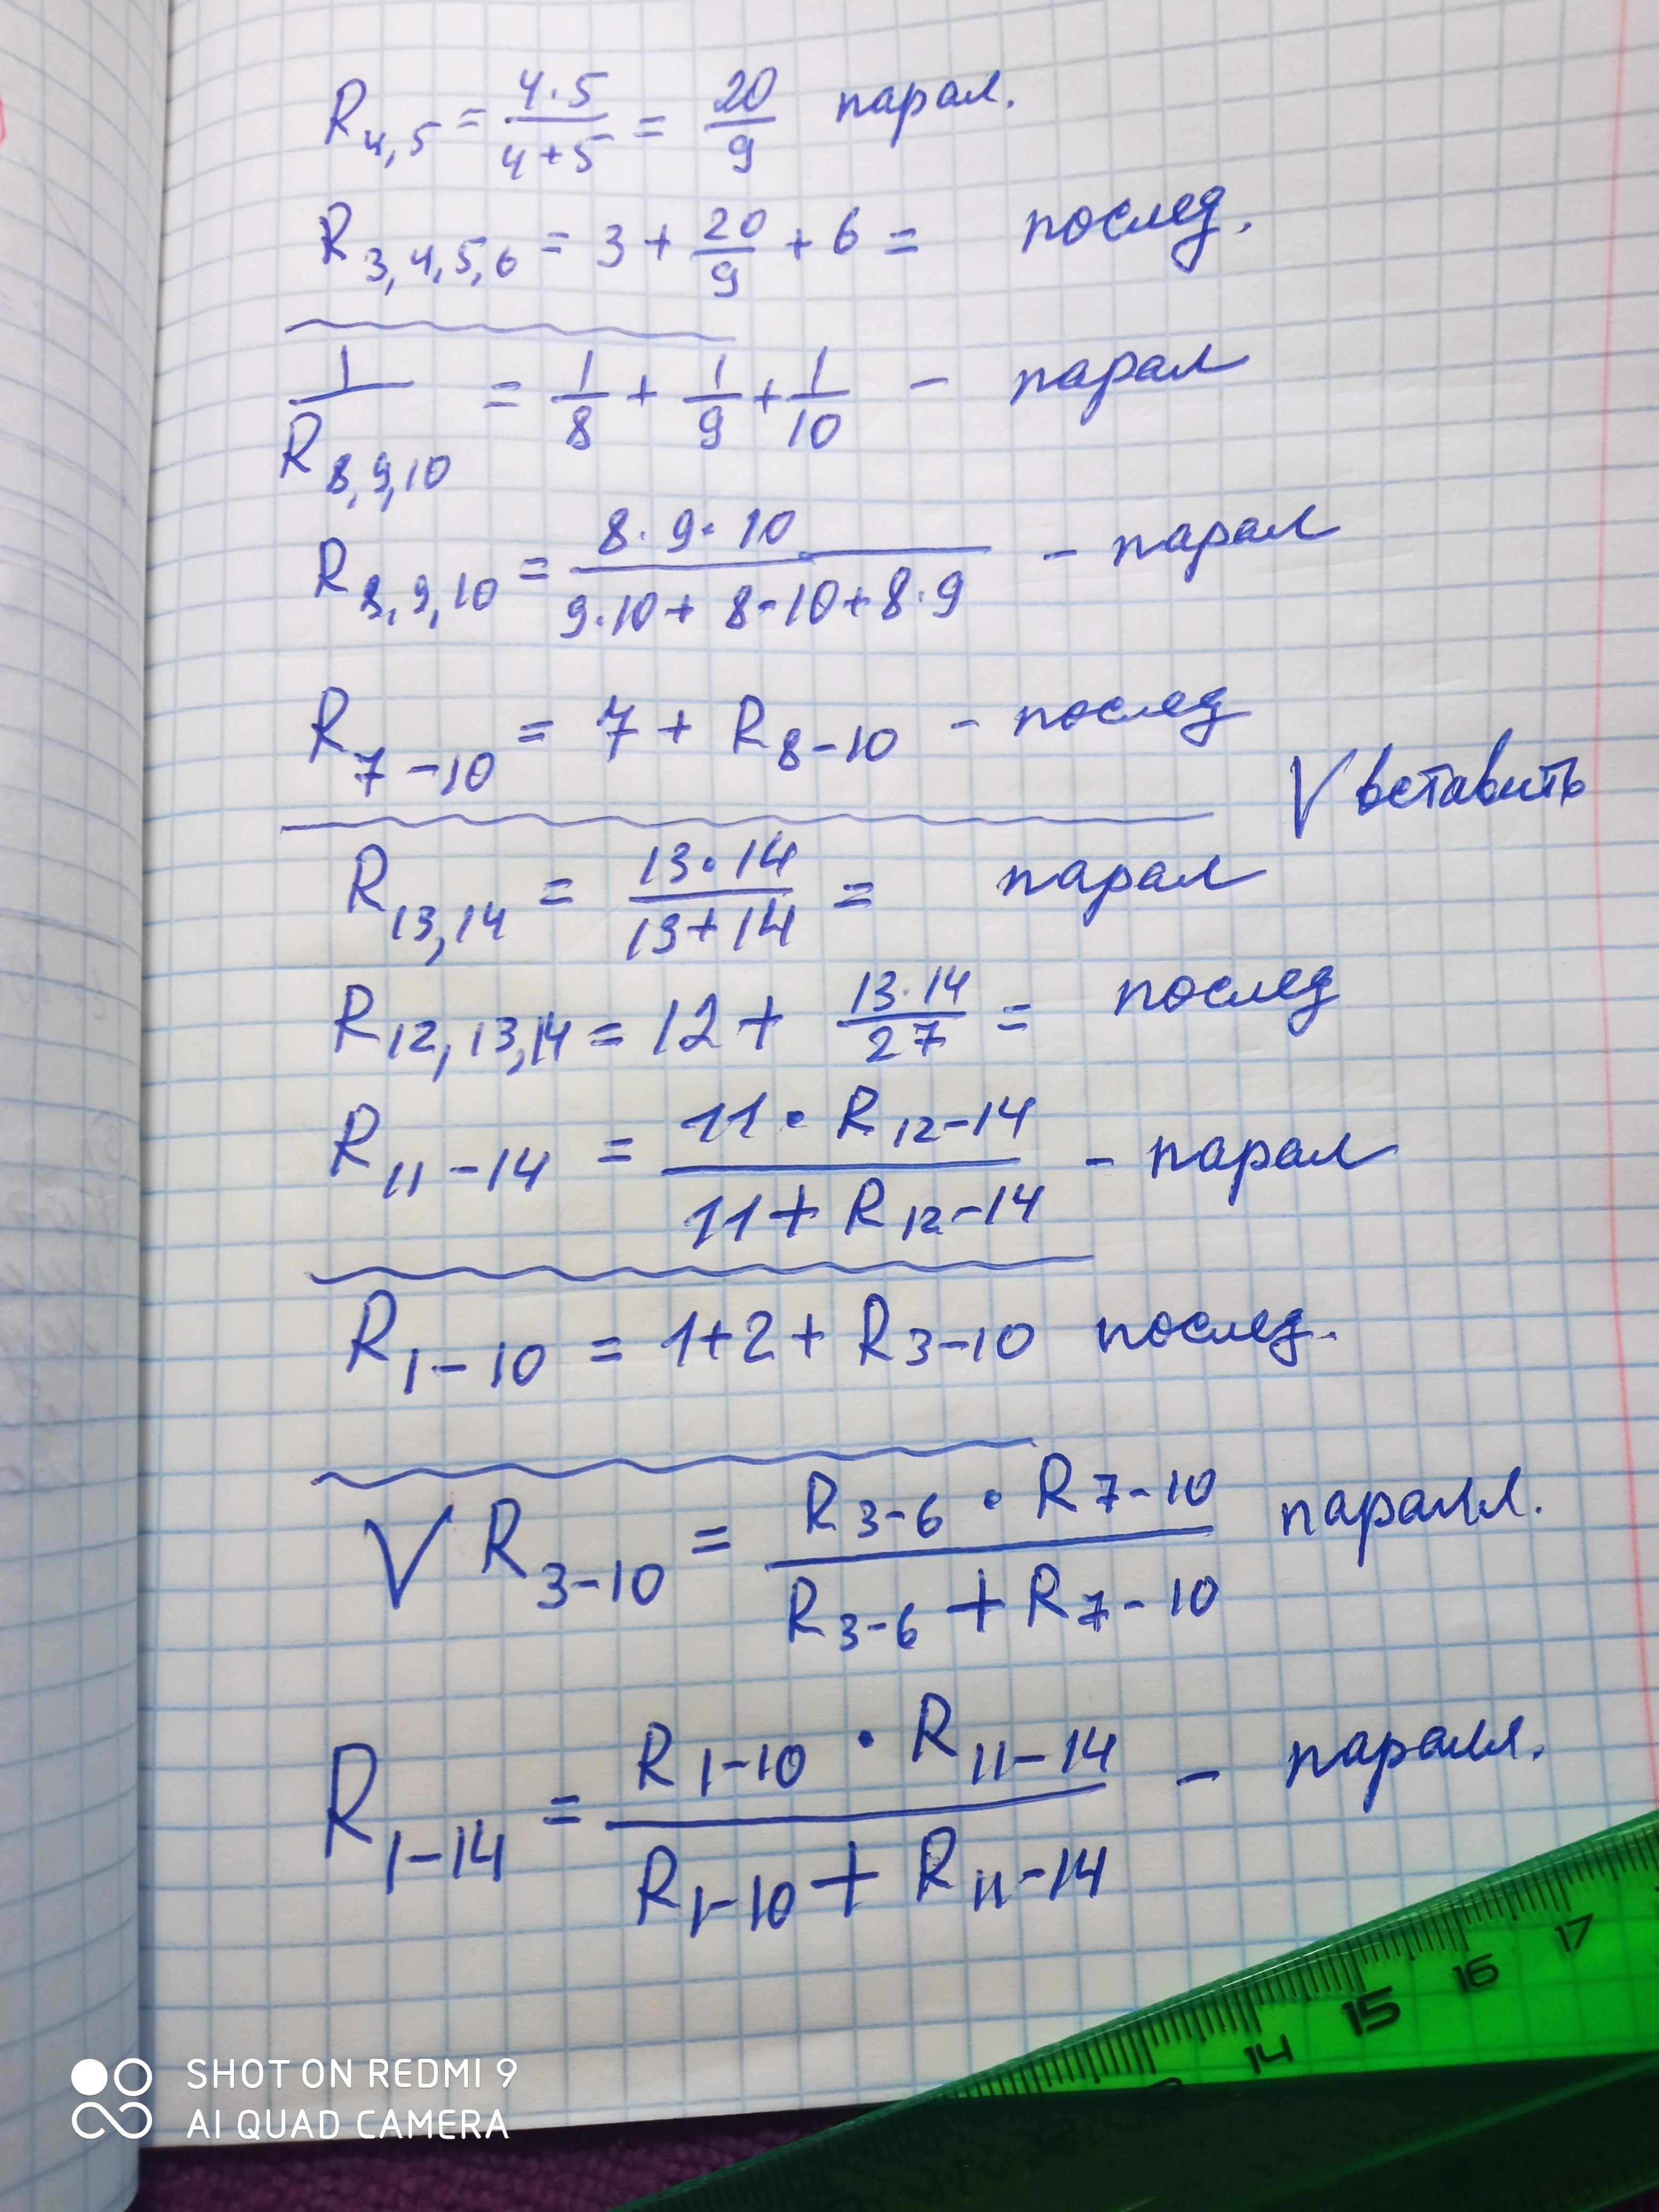 R4,5 = 4·5 / 4+5 = 20/9 парал.
R3,4,5,6 = 3 + 20/9 + 6 = послед.
1/R8,9,10 = 1/8 + 1/9 + 1/10 – парал
R8,9,10 = 8·9·10 / 9·10 + 8·10 + 8·9 – парал
R7–10 = 7 + R8–10 – послед
V вставить
R13,14 = 13·14 / 13+14 = парал
R12,13,14 = 12 + 13·14 / 27 = послед
R11–14 = 11·R12–14 / 11+R12–14 – парал
R1–10 = 1+2+R3–10 послед.
V R3–10 = R3–6 · R7–10 / R3–6 + R7–10 паралл.
R1–14 = R1–10 · R11–14 / R1–10 + R11–14 – паралл.
14 15 16 17
12
SHOT ON REDMI 9
AI QUAD CAMERA